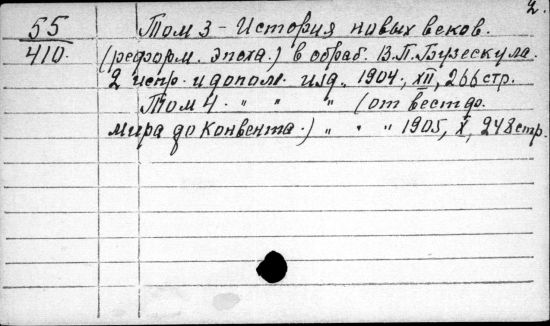 2.
55 Том 3 - История новых веков.
410. (реформ. эпоха.) в обраб. В.П. Бузескула.
2 испр. и дополн. изд., 1904., XII, 266 стр.
Том 4. " " " (от вестф.
мира до Конвента.) " " " 1905, X, 248 стр.